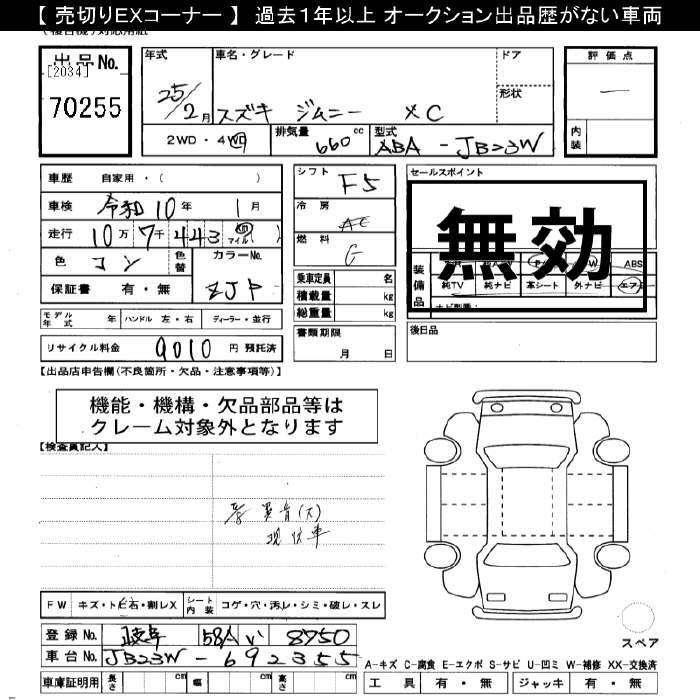 【 売切りEXコーナー 】 過去1年以上 オークション出品歴がない車両
出品No.
[2034]
70255
年式
車名・グレード
ドア
形状
25/2月 スズキ ジムニー XC
2WD・4WD
排気量 660 cc
型式 ABA - JB23W
評価点
—
内装
車歴 自家用・( )
車検 令和10年 1月
走行 10万7千443 Km マイル ( )
色 コン
色替
カラーNo.
ZJP
保証書 有・無
シフト F5
冷房 AC
燃料 G
乗車定員 名
積載量 kg
総重量 kg
書類期限
月 日
セールスポイント
無効
装備品
ABS
純TV 純ナビ 革シート 外ナビ エアB
後日品
モデル年式 年 ハンドル 左・右 ディーラー・並行
リサイクル料金 9010 円 預託済
【出品店申告欄(不良箇所・欠品・注意事項等)】
機能・機構・欠品部品等は
クレーム対象外となります
【検査員記入】
異音(大)
現状車
FW キズ・トビ石・割レX シート内装 コゲ・穴・汚レ・シミ・破レ・スレ
登録No. 岐阜 58A い 8750
車台No. JB23W-692355
車庫証明用 長さ cm 幅 cm 高さ cm
スペア
A-キズ C-腐食 E-エクボ S-サビ U-凹ミ W-補修 XX-交換済
工具 有・無 ジャッキ 有・無